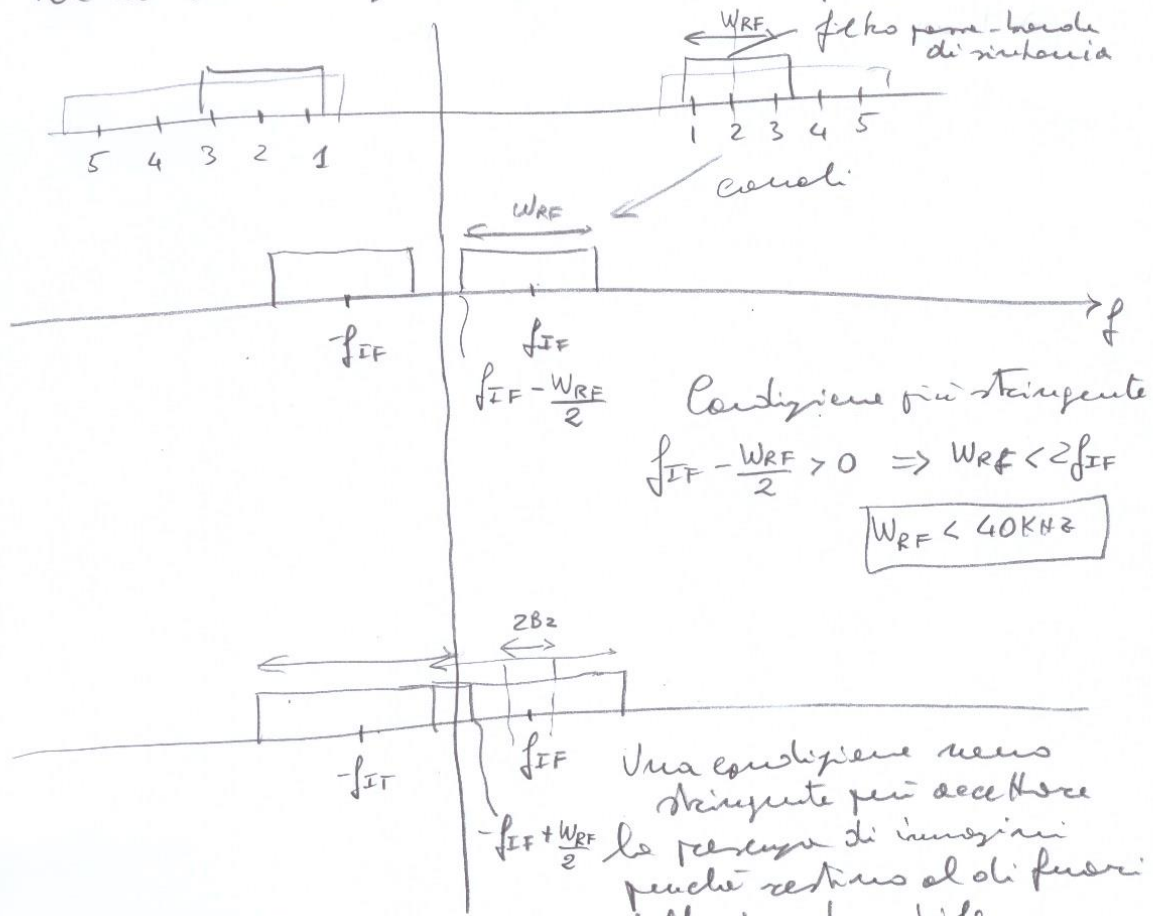 W_RF
filtro passa-banda
di sintonia
5 4 3 2 1
1 2 3 4 5
canali
W_RF
-f_IF
f_IF
f
f_IF - W_RF/2
Condizione più stringente
f_IF - W_RF/2 > 0 => W_RF < 2f_IF
W_RF < 40KHz
2B2
-f_IF
f_IF
-f_IF + W_RF/2
Una condizione meno
stringente può accettare
la presenza di immagini
purché restino al di fuori